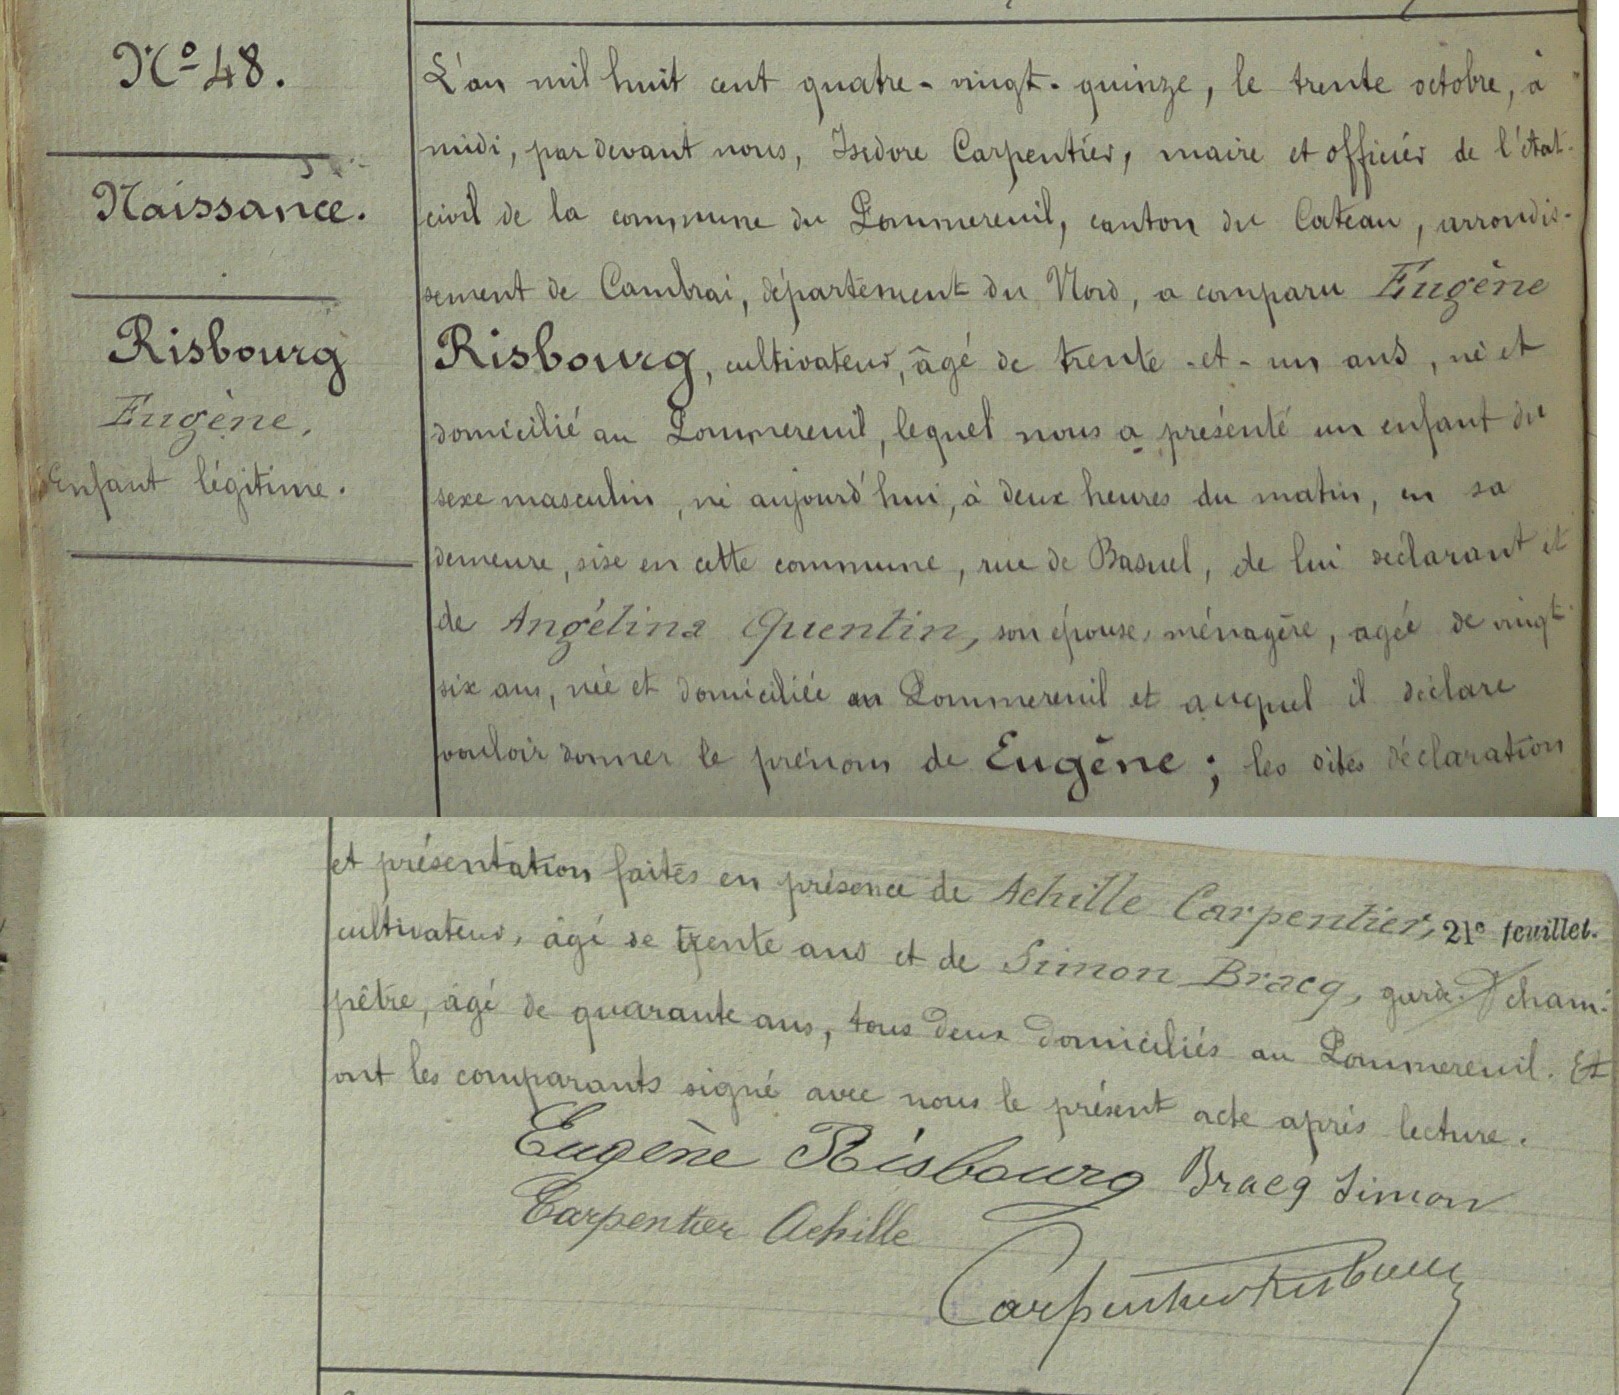 N° 48.
Naissance.
Risbourg
Eugène.
Enfant légitime.
L'an mil huit cent quatre-vingt-quinze, le trente octobre, à
midi, pardevant nous, Isidore Carpentier, maire et officier de l'état-
civil de la commune du Pommereuil, canton du Cateau, arrondis-
sement de Cambrai, département du Nord, a comparu Eugène
Risbourg, cultivateur, âgé de trente-et-un ans, né et
domicilié au Pommereuil, lequel nous a présenté un enfant du
sexe masculin, né aujourd'hui, à deux heures du matin, en sa
demeure, sise en cette commune, rue de Basuel, de lui déclarant et
de Angélina Quentin, son épouse, ménagère, agée de vingt-
six ans, née et domiciliée au Pommereuil et auquel il déclare
vouloir donner le prénom de Eugène ; les dites déclaration
et présentation faites en présence de Achille Carpentier,
21e feuillet.
cultivateur, âgé de trente ans et de Simon Bracq, garde-cham-
pêtre, âgé de quarante ans, tous deux domiciliés au Pommereuil. Et
ont les comparants signé avec nous le présent acte après lecture.
Eugène Risbourg Bracq Simon
Carpentier Achille
Carpentier Risbourg